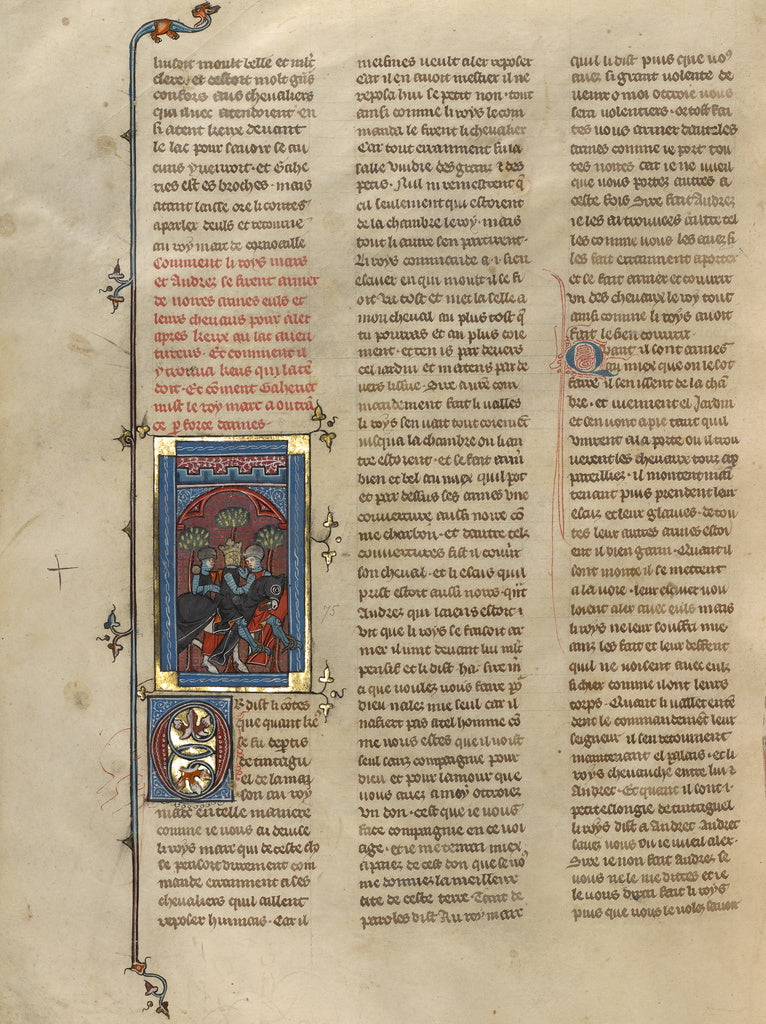 luisoit moult belle et mlt
clere. et cestoit molt gñs
confors aus chevaliers
qui avec atendoient en
si atent keux devant
le lac pour savoir se au
cuns y venroit. et Gahe
ries est es broches. mais
atant laisse ore li contes
a parler deuls et retorne
au roy marc de cornoaille
Comment li roys mars
et Andrez se firent armer
de noires armes euls et
leurs chevaus pour aler
apres keux qui lac aven
tureus. Et comment il
y trouva keus qui laten
doit. Et cõment Gaheriet
mist le roy marc a outrã
ce ꝑ force darmes.
Or dist li cõtes
que quant kex
se fu deptis
de tintagu
el de la mai
son au roy
marc en telle maniere
comme je vous ai devise
li roys marc qui de ceste chose
se pensoit durement com
mande erranment a ses
chevaliers quil aillent
reposer huimais. Car il
meismes veult aler reposer
Car il en avoit mestier il ne
reposa hui se petit non. tout
ainsi comme li roys le com
manda le firent li chevalier
Car tout erranment fu la
salle vuidie des grans & des
petis. Nul ni remestrent q̃
cil seulement qui estoient
de la chambre le roy. mais
tout li autre sen partirent.
Li roys commande a .i. sien
escuier en qui moult il se fi
oit va tost et met la selle a
mon cheval au plus tost q̃
tu pourras et au plus coie
ment. et ten is par devers
cel jardin et matens par de
vers lissue. Sire a vostre com
mandement fait li valles
li roys sen vait tout coiement
jusqua la chambre ou si au
tre estoient. et se fait armer
bien et bel au miex quil pot
et par dessus ses armes une
couverture aussi noire cõ
me charbon. et dautre tels
couvertures fist il couvrir
son cheval. et li escus quil
prist estoit aussi noirs. q̃nt
Andrez qui laiens estoit
vit que li roys se faisoit ar
mer il vint devant lui mlt
pensis et li dist ha. sire
a que voulez vous faire pour
dieu nalez mie seul car il
nafiert pas a tel homme cõ
me vous estes que il voist
seul sans compaignie pour
dieu et pour lamour que
vous avez a moy otroiez
un don. cest que je vous
face compaignie en ce voi
age. et je me tenrai miex
a paiez de cest don que se vo9
me donniez la meilleur
cite de ceste terre. Tant de
paroles dist Au roy marc
quil li dist puis que vo9
avez si grant volente de
venir o moi otroie vous
sera volentiers. or tost fai
tes vous armer dautelles
armes comme je port tou
tes noires car je ne vueil
que vous portez autres a
ceste fois Sire fait Andrez
je les ai trouvees autretel
les comme vous les avez si
les fait erranment aporter
et se fait armer et couvrir
un des chevaux le roy tout
ainsi comme li roys avoit
fait le sien couvrir.
Quant il sont armes
au miex que on le sot
faire il sen issent de la cha
bre. et viennent el Jardin
et sen vont a pie tant quil
vinrent a la porte ou il trou
verent les chevaux tous ap
pareilliez. il montent main
tenant puis prendent leur
escuz et leur glaives. de tou
tes leur autres armes estoi
ent il bien garni. Quant il
sont monte il se metent
a la voie. leur escuier vou
loient aler avec euls mais
li roys ne leur souffri mie
ainz les fait et leur deffent
quil ne voisent avec eulz
si chier comme il ont leurs
corps. Quant li vallet enten
dent le commandement leur
seigneur il sen retournent
maintenant el palais. et li
roys chevauche entre lui &
Andret. Et quant il sont .i.
petit eslongie de tintaguel
li roys dist a Andret Andret
savez vous ou je vueil aler.
Sire je non fait andrez se
vous ne le me dittes et je
le vous dirai fait li roys
puis que vous le volez savoir
75